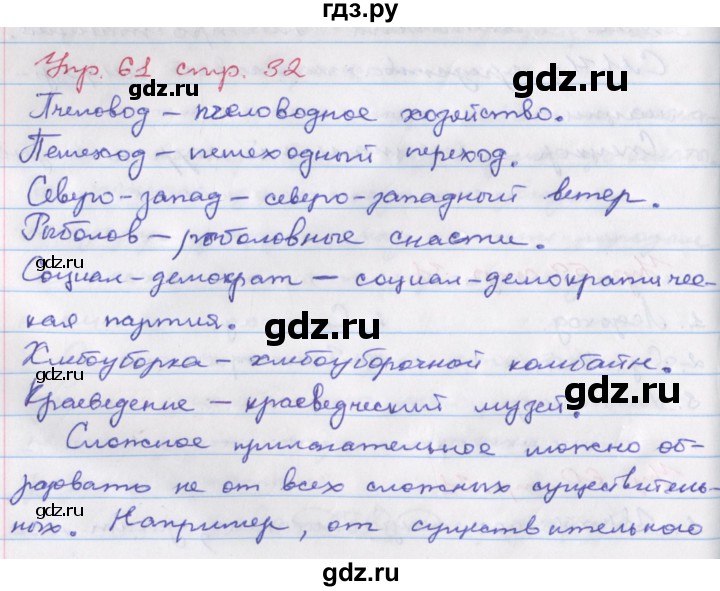 гдз.ру
Упр. 61 стр. 32
gdz.ru
gdz.ru
Пчеловод – пчеловодное хозяйство.
gdz.ru
gdz.ru
Пешеход – пешеходный переход.
Северо-запад – северо-западный ветер.
gdz.ru
Рыболов – рыболовные снасти.
gdz.ru
gdz.ru
Социал-демократ – социал-демократичес-
кая партия.
gdz.ru
Хлебоуборка – хлебоуборочной комбайн.
gdz.ru
gdz.ru
Краеведение – краеведческий музей.
Сложное прилагательное можно об-
gdz.ru
gdz.ru
разовать не от всех сложных существитель-
ных. Например, от существительного
gdz.ru
gdz.ru